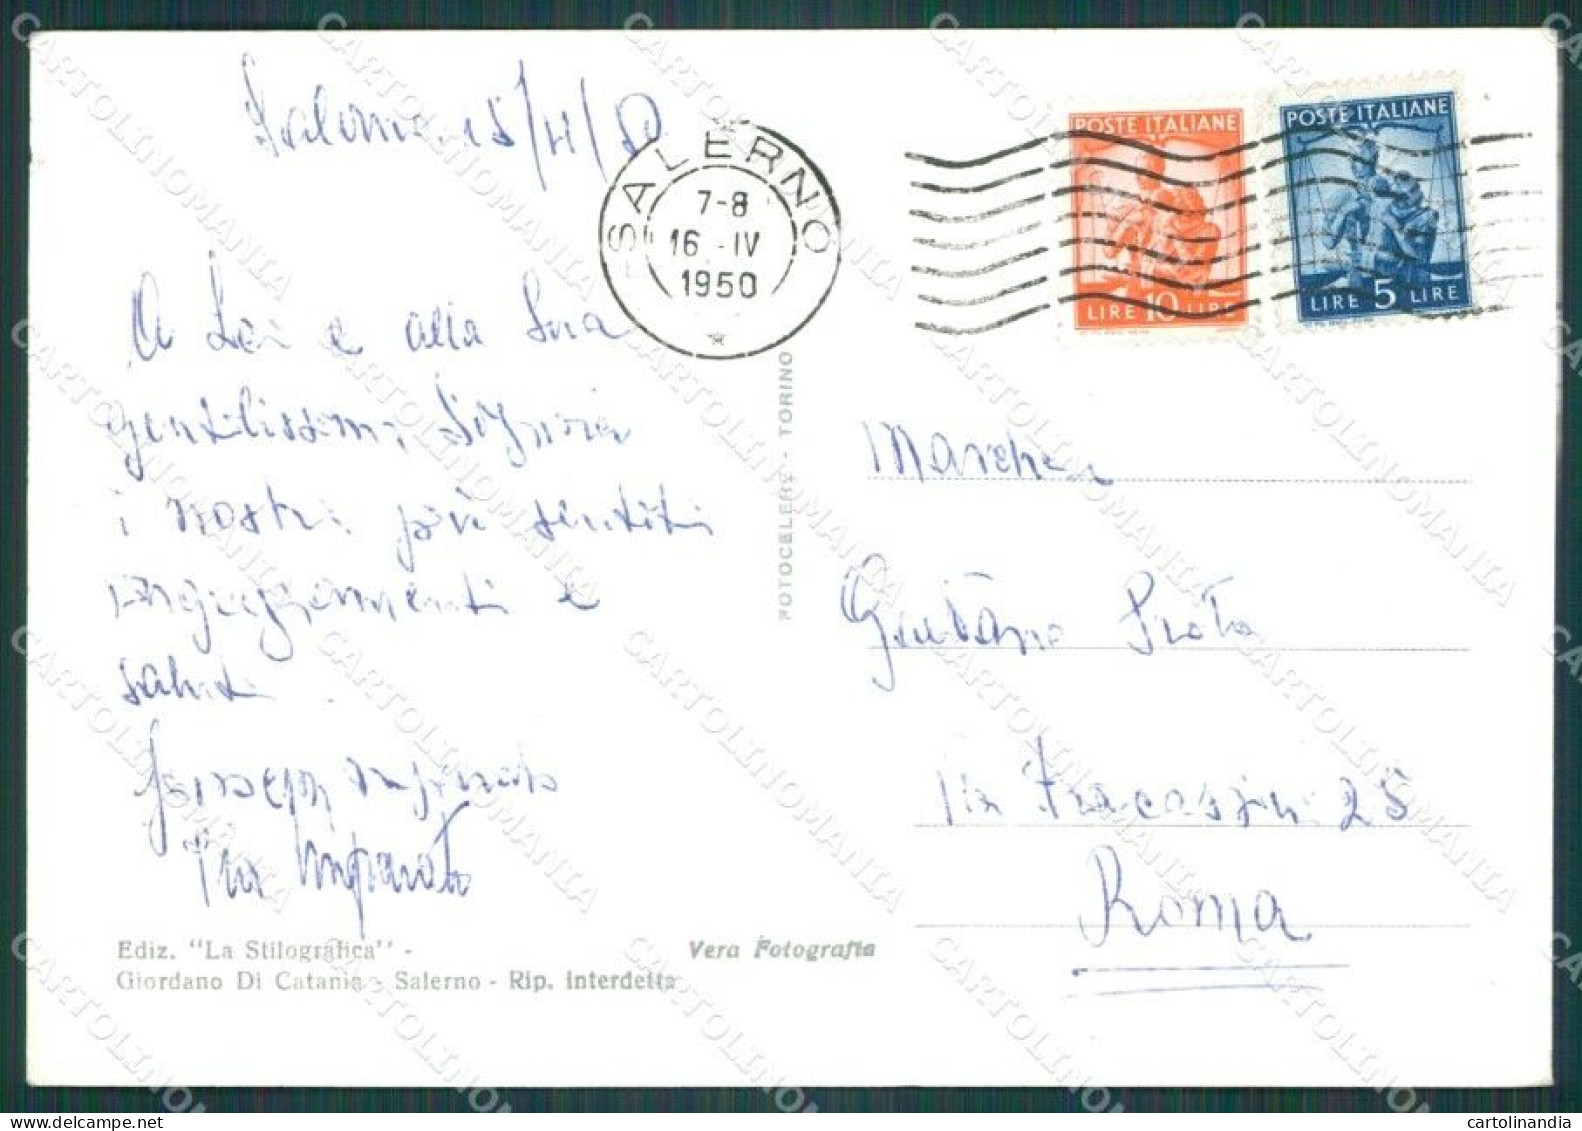 Salerno 15/4/50
SALERNO
7-8
16 . IV
1950
POSTE ITALIANE
LIRE 10 LIRE
POSTE ITALIANE
LIRE 5 LIRE
A Lei e alla Sua
gentilissima Signora
i nostri più sentiti
e
saluti
Giuseppe
Imparato
FOTOCELERE - TORINO
Marchese
Gaetano
Via Fracassini 25
Roma
Ediz. "La Stilografica" -
Giordano Di Catania - Salerno - Rip. interdetta
Vera Fotografia
CARTOLINOMANIA
cartolinandia